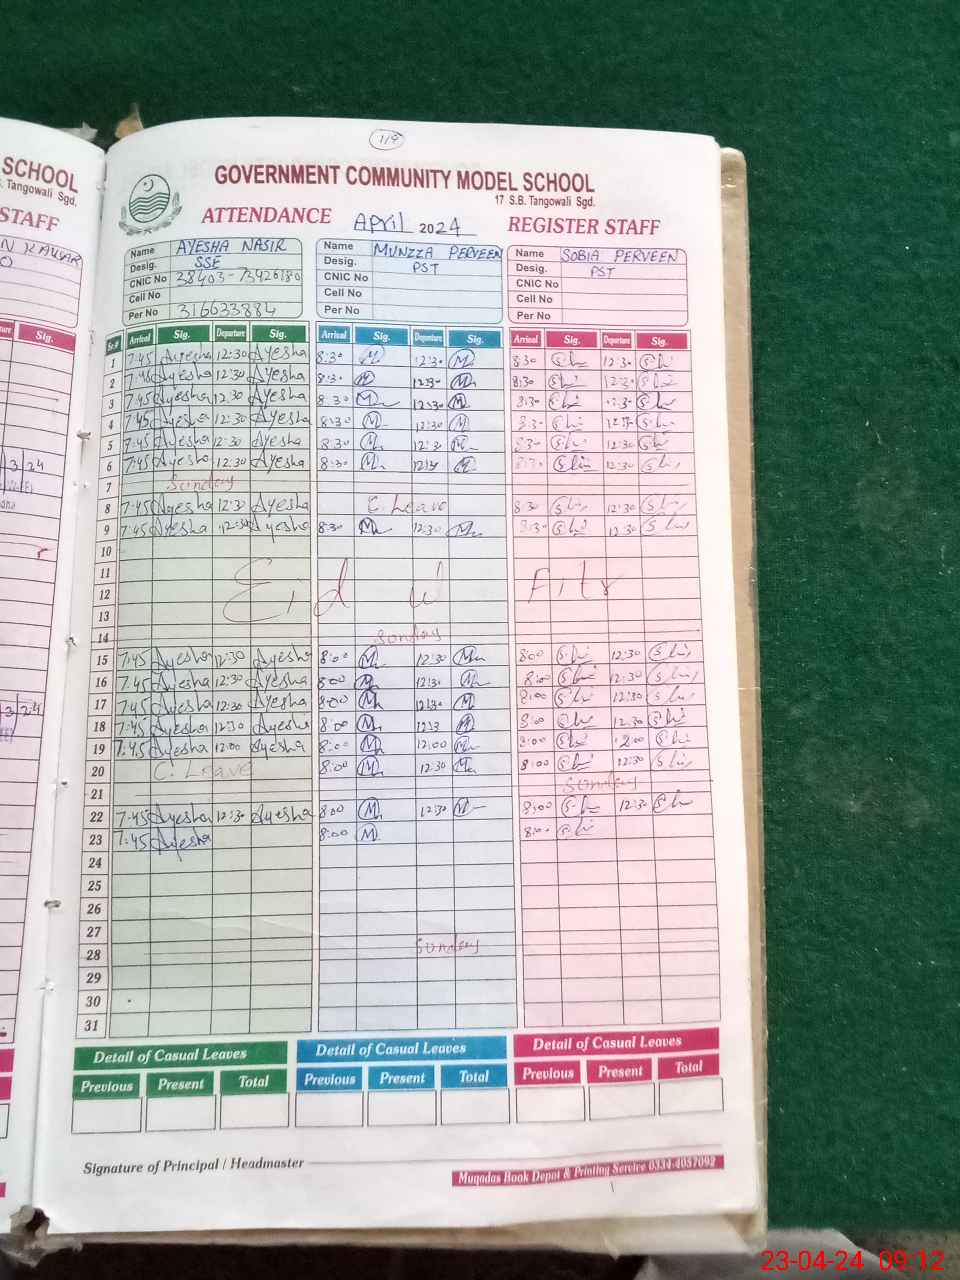 SCHOOL
S. Tangowali Sgd.
STAFF
N KAUSAR
Sig.
1/9
GOVERNMENT COMMUNITY MODEL SCHOOL
17 S.B. Tangowali Sgd.
ATTENDANCE April 2024 REGISTER STAFF
Name AYESHA NASIR Name MUNZZA PERVEEN Name SOBIA PERVEEN
Desig. SSE Desig. PST Desig. PST
CNIC No CNIC No CNIC No
Cell No Cell No Cell No
Per No 316633884 Per No Per No
Sr.# Arrival Sig. Departure Sig. Arrival Sig. Departure Sig. Arrival Sig. Departure Sig.
1 7:45 Ayesha 12:30 Ayesha 8:30 M 12:30 M 8:30 12:30
2 7:45 Ayesha 12:30 Ayesha 8:30 M 12:30 M 8:30 12:30
3 7:45 Ayesha 12:30 Ayesha 8:30 M 12:30 M 8:30 12:30
4 7:45 Ayesha 12:30 Ayesha 8:30 M 12:30 M 8:30 12:30
5 7:45 Ayesha 12:30 Ayesha 8:30 M 12:30 M 8:30 12:30
6 7:45 Ayesha 12:30 Ayesha 8:30 M 12:30 M 12:30
7 Sunday
8 7:45 Ayesha 12:30 Ayesha C. Leave 8:30 12:30
9 7:45 Ayesha 12:30 Ayesha 8:30 M 12:30 M 8:30 12:30
10
11
12 Eid ul Fitr
13
14 Sunday
15 7:45 Ayesha 12:30 Ayesha 8:00 M 12:30 M 8:00 12:30
16 7:45 Ayesha 12:30 Ayesha 8:00 M 12:30 M 8:00 12:30
17 7:45 Ayesha 12:30 Ayesha 8:00 M 12:30 M 8:00 12:30
18 7:45 Ayesha 12:30 Ayesha 8:00 M 12:3 M 8:00 12:30
19 7:45 Ayesha 12:00 Ayesha 8:00 M 12:00 M 8:00 12:00
20 C. Leave 8:00 M 12:30 M 8:00 12:30
21 Sunday
22 7:45 Ayesha 12:30 Ayesha 8:00 M 12:30 M 8:00 12:30
23 7:45 Ayesha 8:00 M 8:00
24
25
26
27
28 Sunday
29
30
31
Detail of Casual Leaves Detail of Casual Leaves Detail of Casual Leaves
Previous Present Total Previous Present Total Previous Present Total
Signature of Principal / Headmaster
Muqadas Book Depot & Printing Service 0334-4057092
23-04-24 09:12